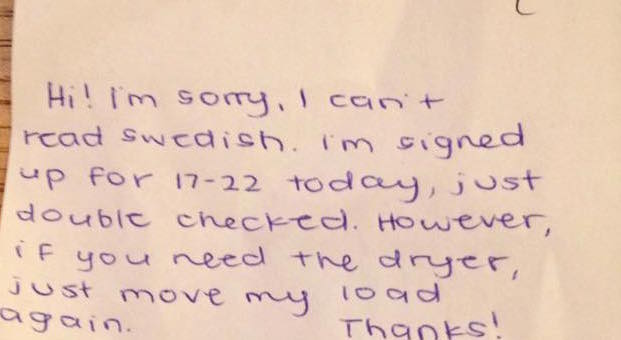 Hi! I'm sorry, I can't
read swedish. I'm signed
up for 17-22 today, just
double checked. However,
if you need the dryer,
just move my load
again. Thanks!